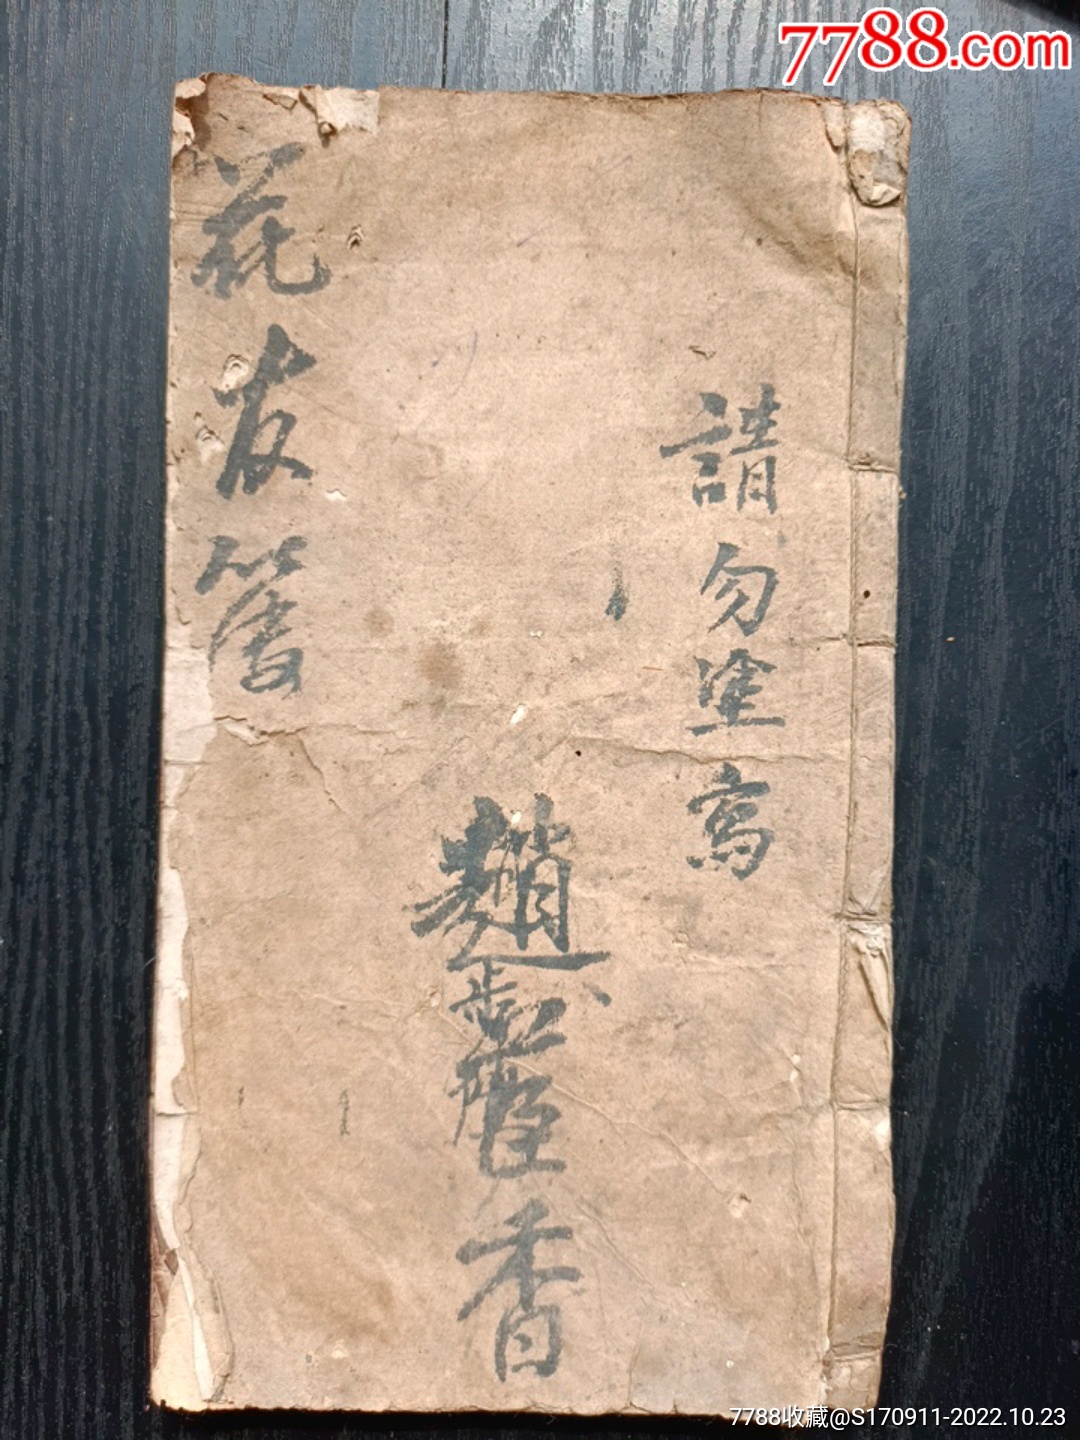 7788.com
請勿塗寫
趙香
花友
7788收藏@S170911-2022.10.23